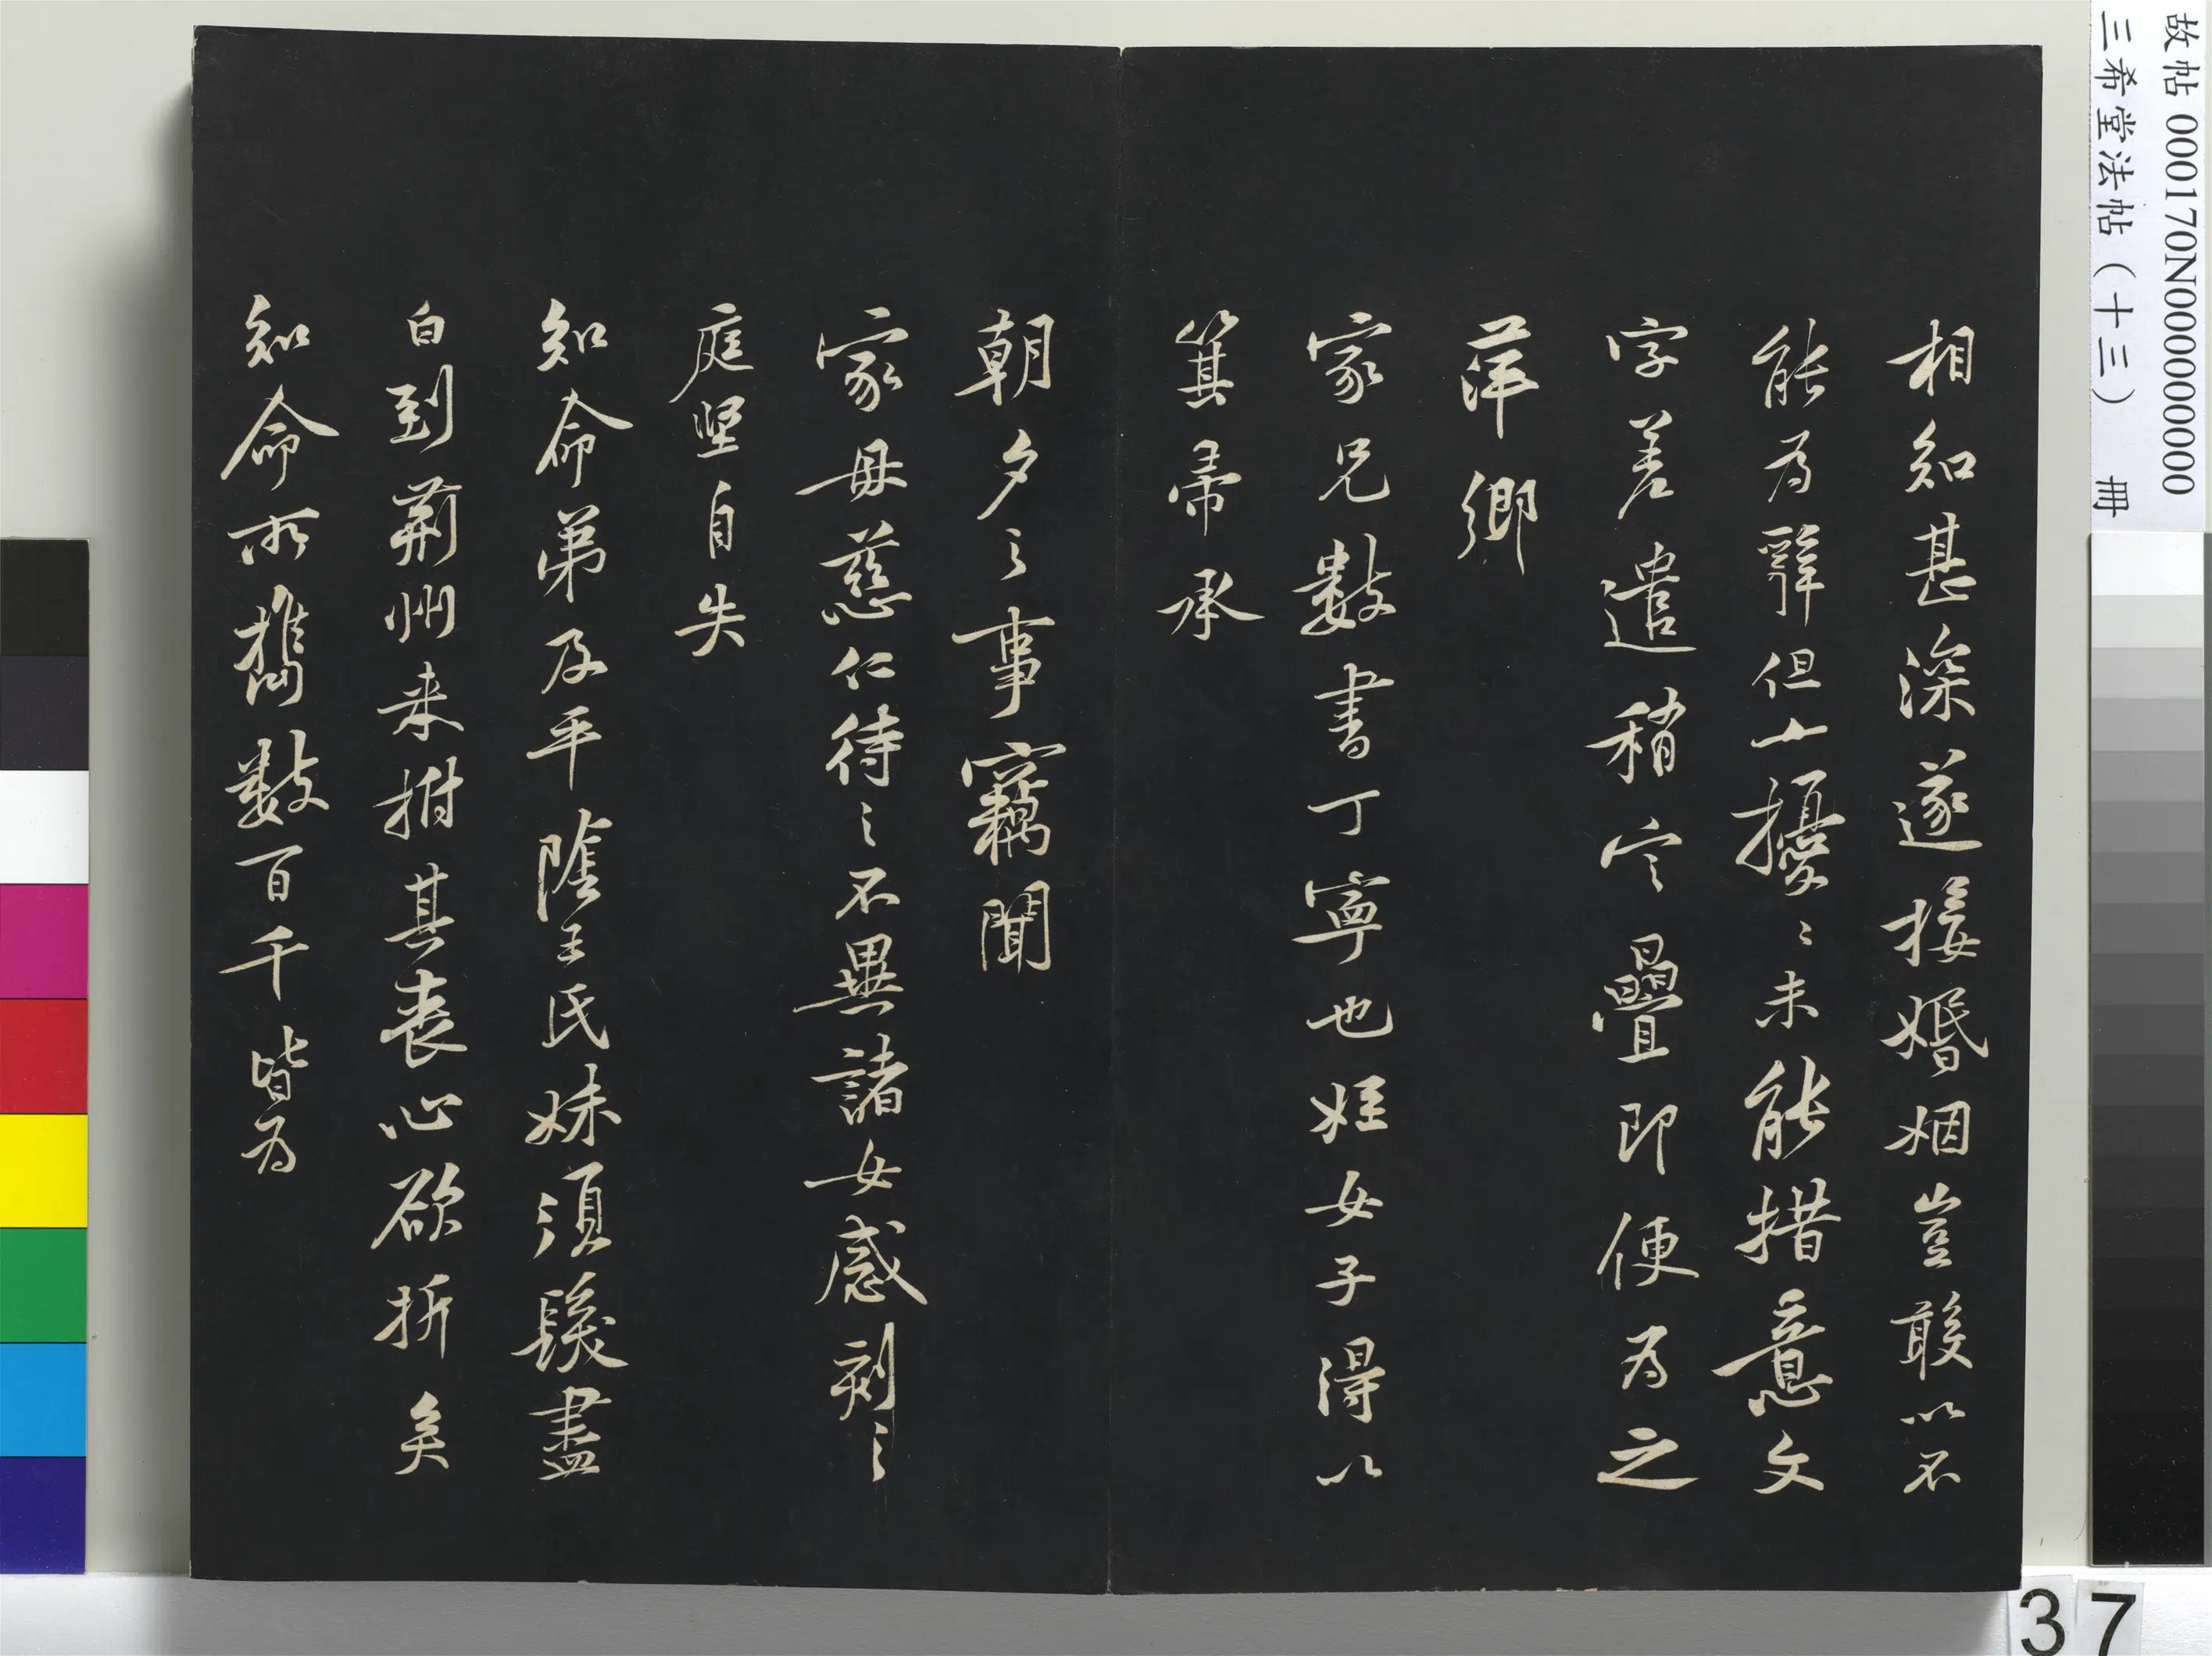 相知甚深遂接婚姻豈敢以不
能為辭但小擾〻未能措意文
字差遣稍定疊即便為之
萍鄉
家兄數書丁寧也姪女子得以
箕帚承
朝夕之事竊聞
家母慈仁待之不異諸女感刻之
庭堅自失
知命弟及平陰王氏妹須髮盡
白到荊州来拊其喪心欲折矣
知命所攜數百千皆為
故帖 000170N000000000
三希堂法帖（十三） 冊
37